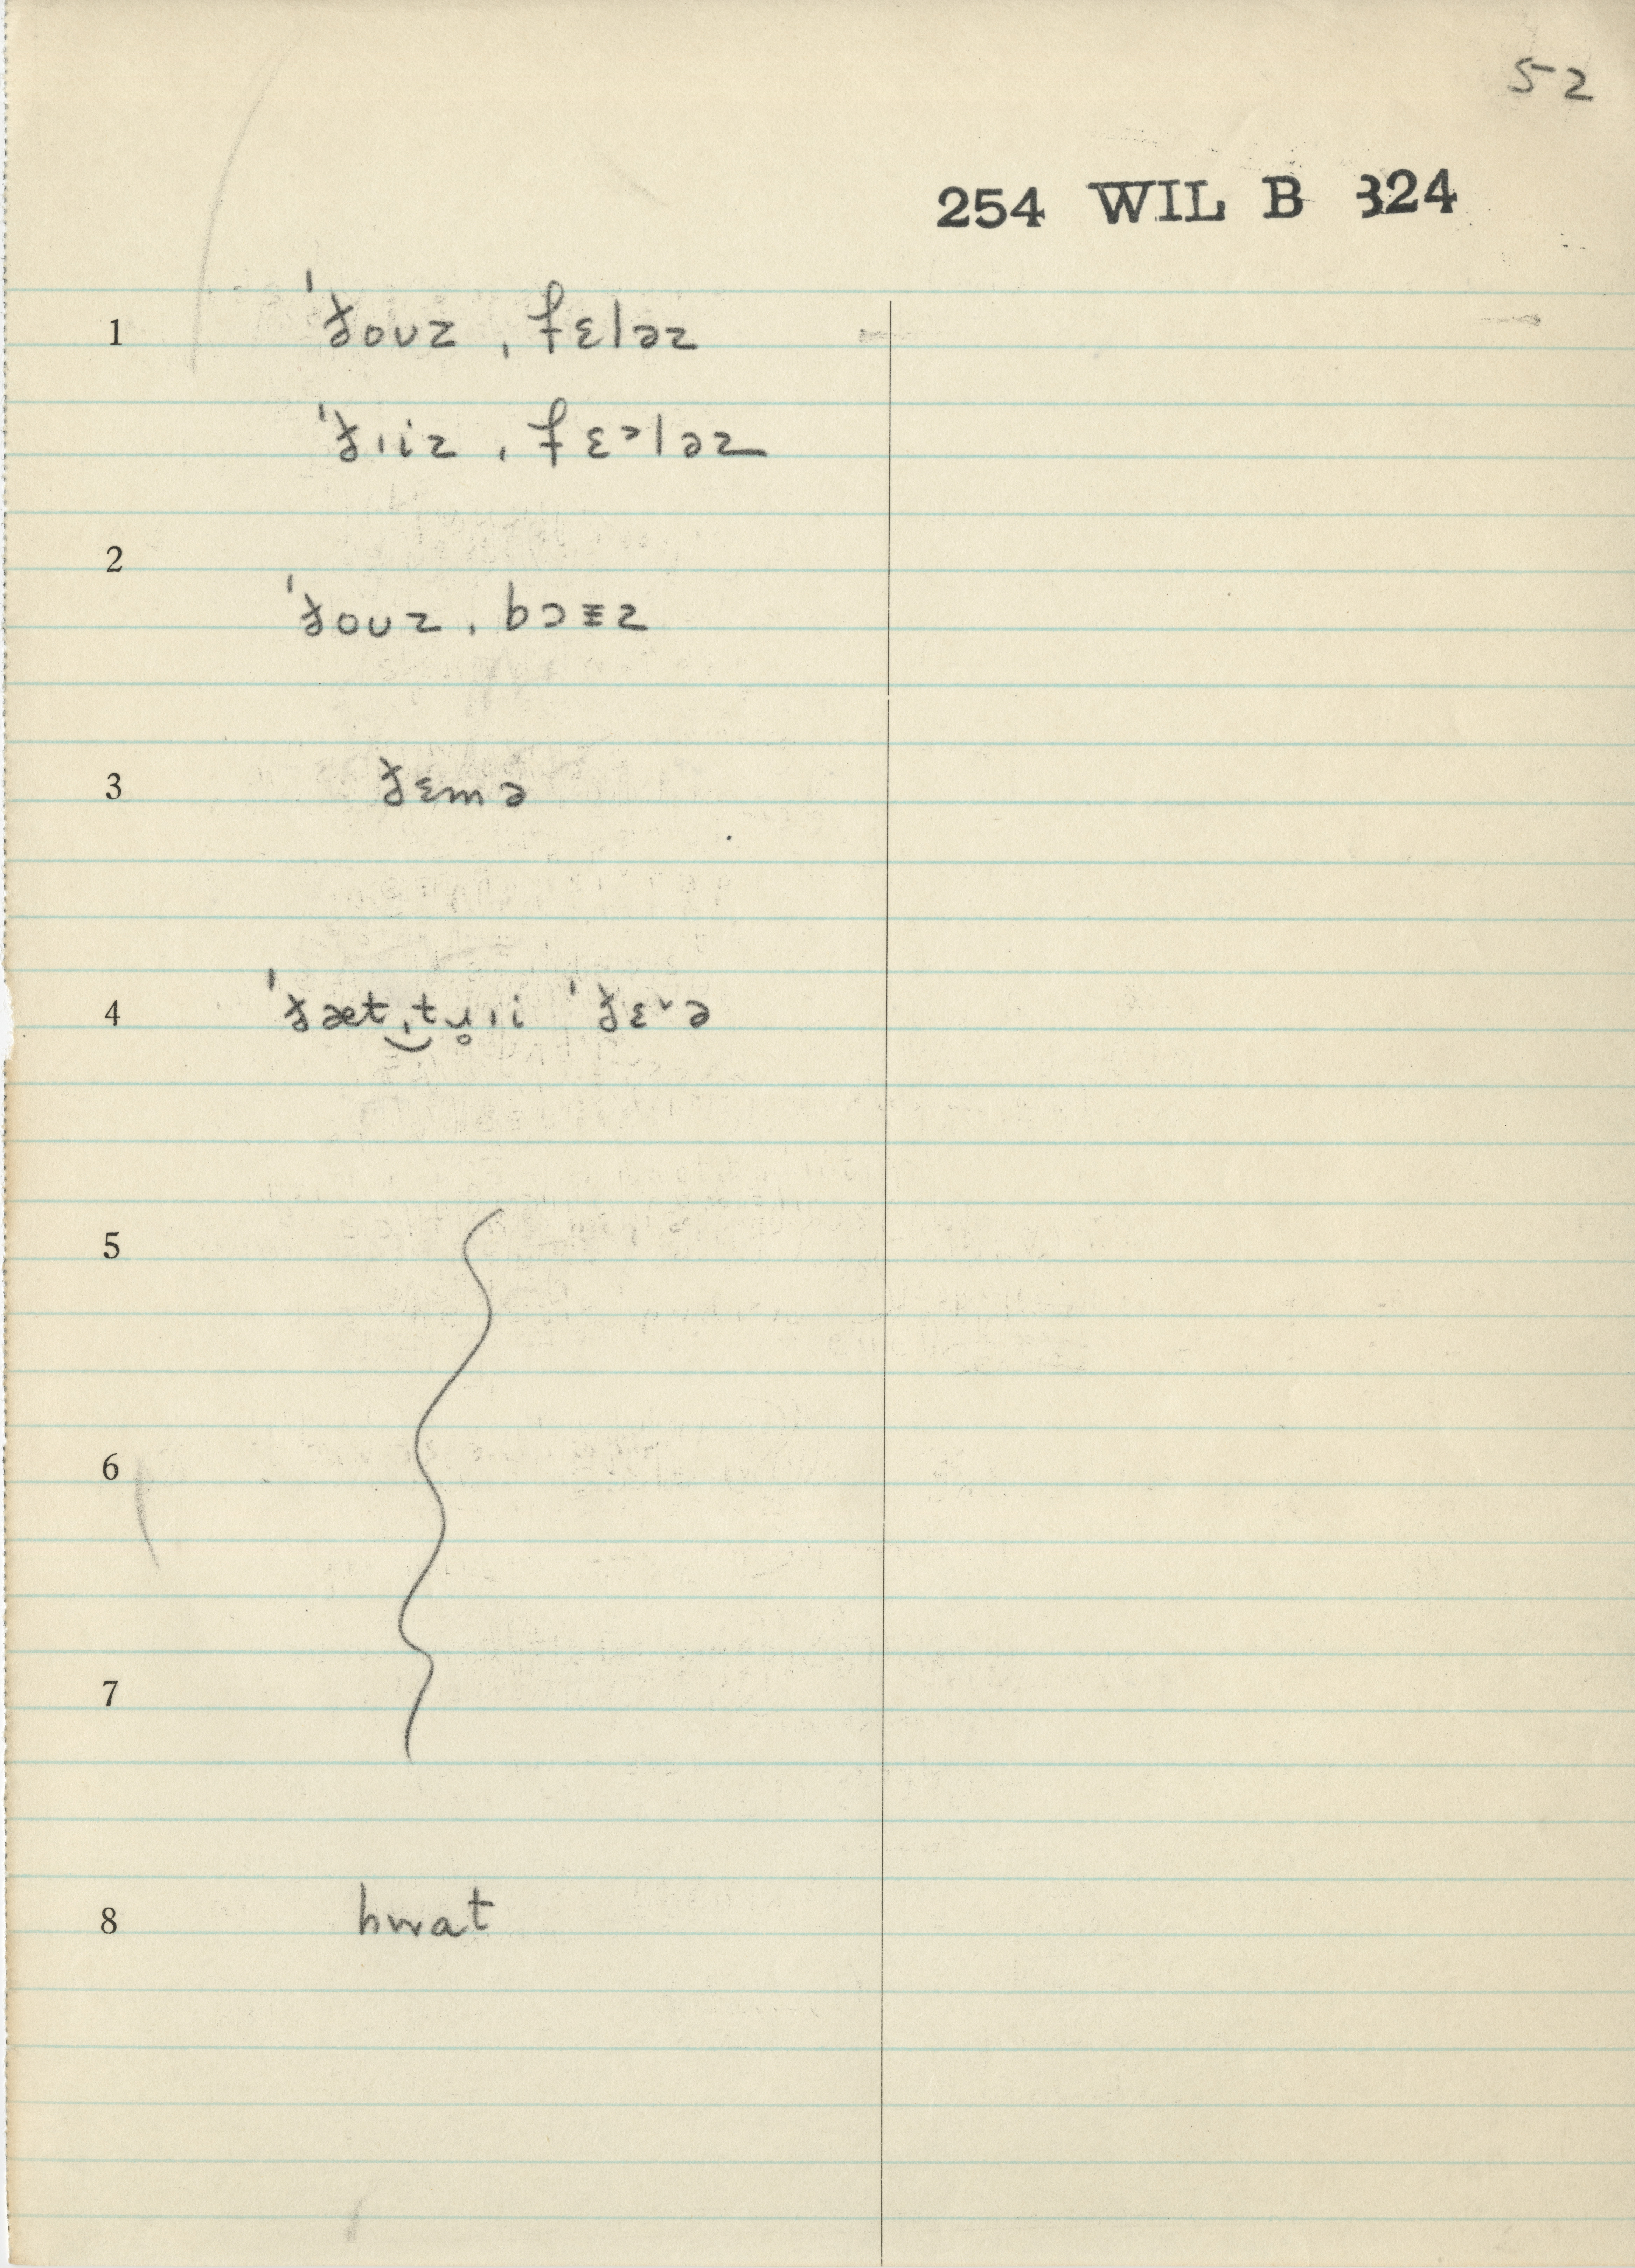 52
254 WIL B 324
1 ˈðouz ˌfɛləz
ˈðɪiz ˌfɛᵊləz
2
ˈðouz ˌbɔɪz
3 ðɛmə
4 ˈðæt ˌtʉ̥ɪi ˈðɛᵛə
5
6
7
8 hwat